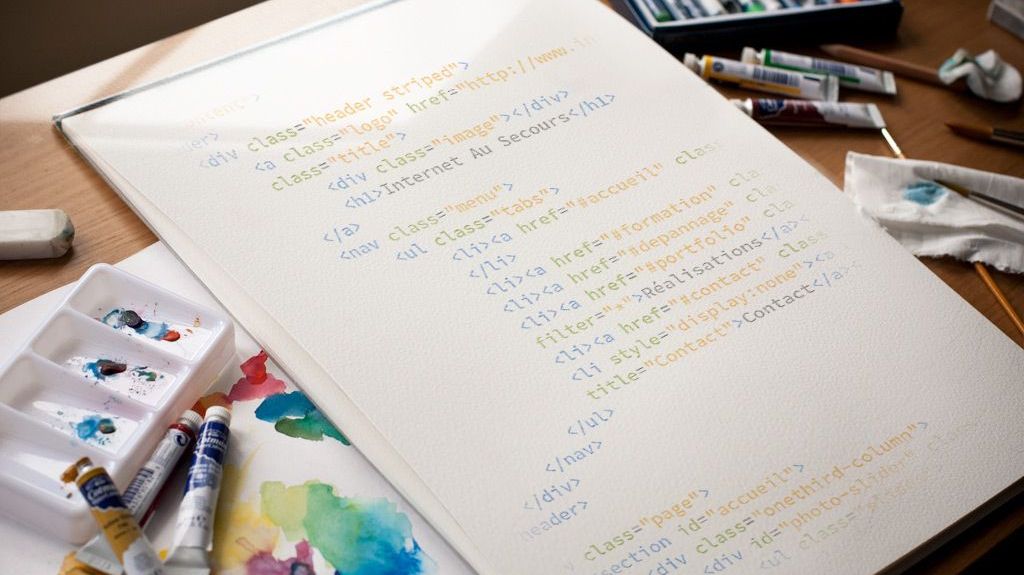 <div class="header striped">
<a class="logo" href="http://www.
class="title">
<div class="image"></div>
<h1>Internet Au Secours</h1>
</a>
<nav class="menu">
<ul class="tabs">
<li><a href="#accueil"
</li>
<li><a href="#formation"
<li><a href="#depannage"
<li><a href="#portfolio"
filter="*">Réalisations</a><
<li><a href="#contact"
<li style="display:none"><a
title="Contact">Contact</a><
</ul>
</nav>
</div>
header>
class="page">
section id="accueil">
<div class="onethird-column">
<div id="photo-slide"
<ul class="